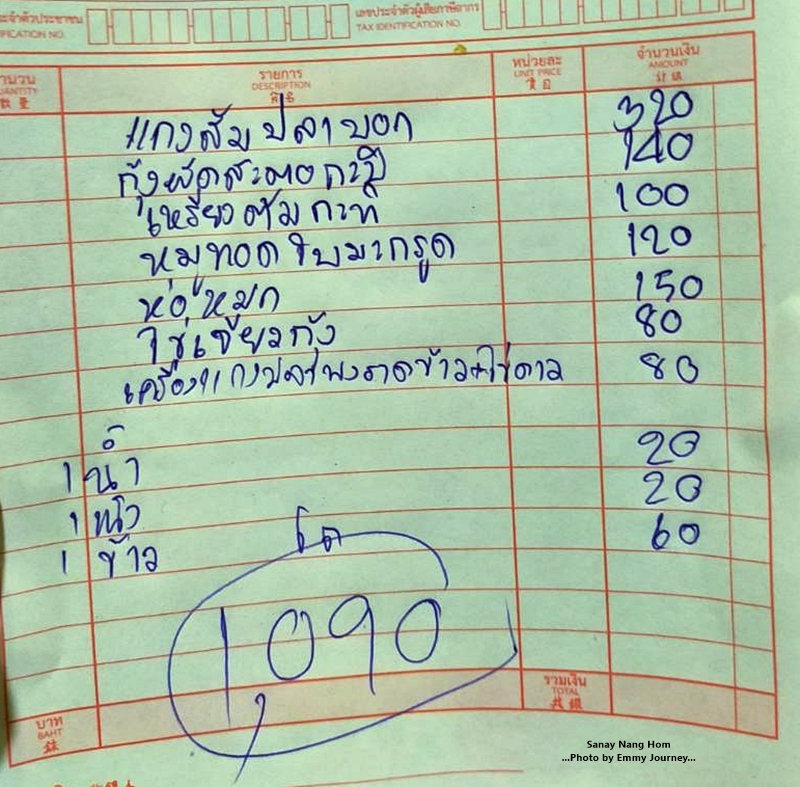 ะจำตัวประชาชน เลขประจำตัวผู้เสียภาษีอากร
IFICATION NO. TAX IDENTIFICATION NO.
านวน รายการ หน่วยละ จำนวนเงิน
UANTITY DESCRIPTION UNIT PRICE AMOUNT
數量
แกงส้มปลาบอก 320
กุ้งผัดสะตอกะปิ 140
เหรียงต้มกะทิ 100
หมูทอดใบมะกรูด 120
ห่อหมก 150
ไข่เจียวกุ้ง 80
เครื่องแกงปลาพงราดข้าว+ไข่ดาว 80
1 น้ำ 20
1 แข็ง 20
1 ข้าว 60
โต
1,090
บาท รวมเงิน
BAHT TOTAL
銖 共銀
Sanay Nang Hom
...Photo by Emmy Journey...